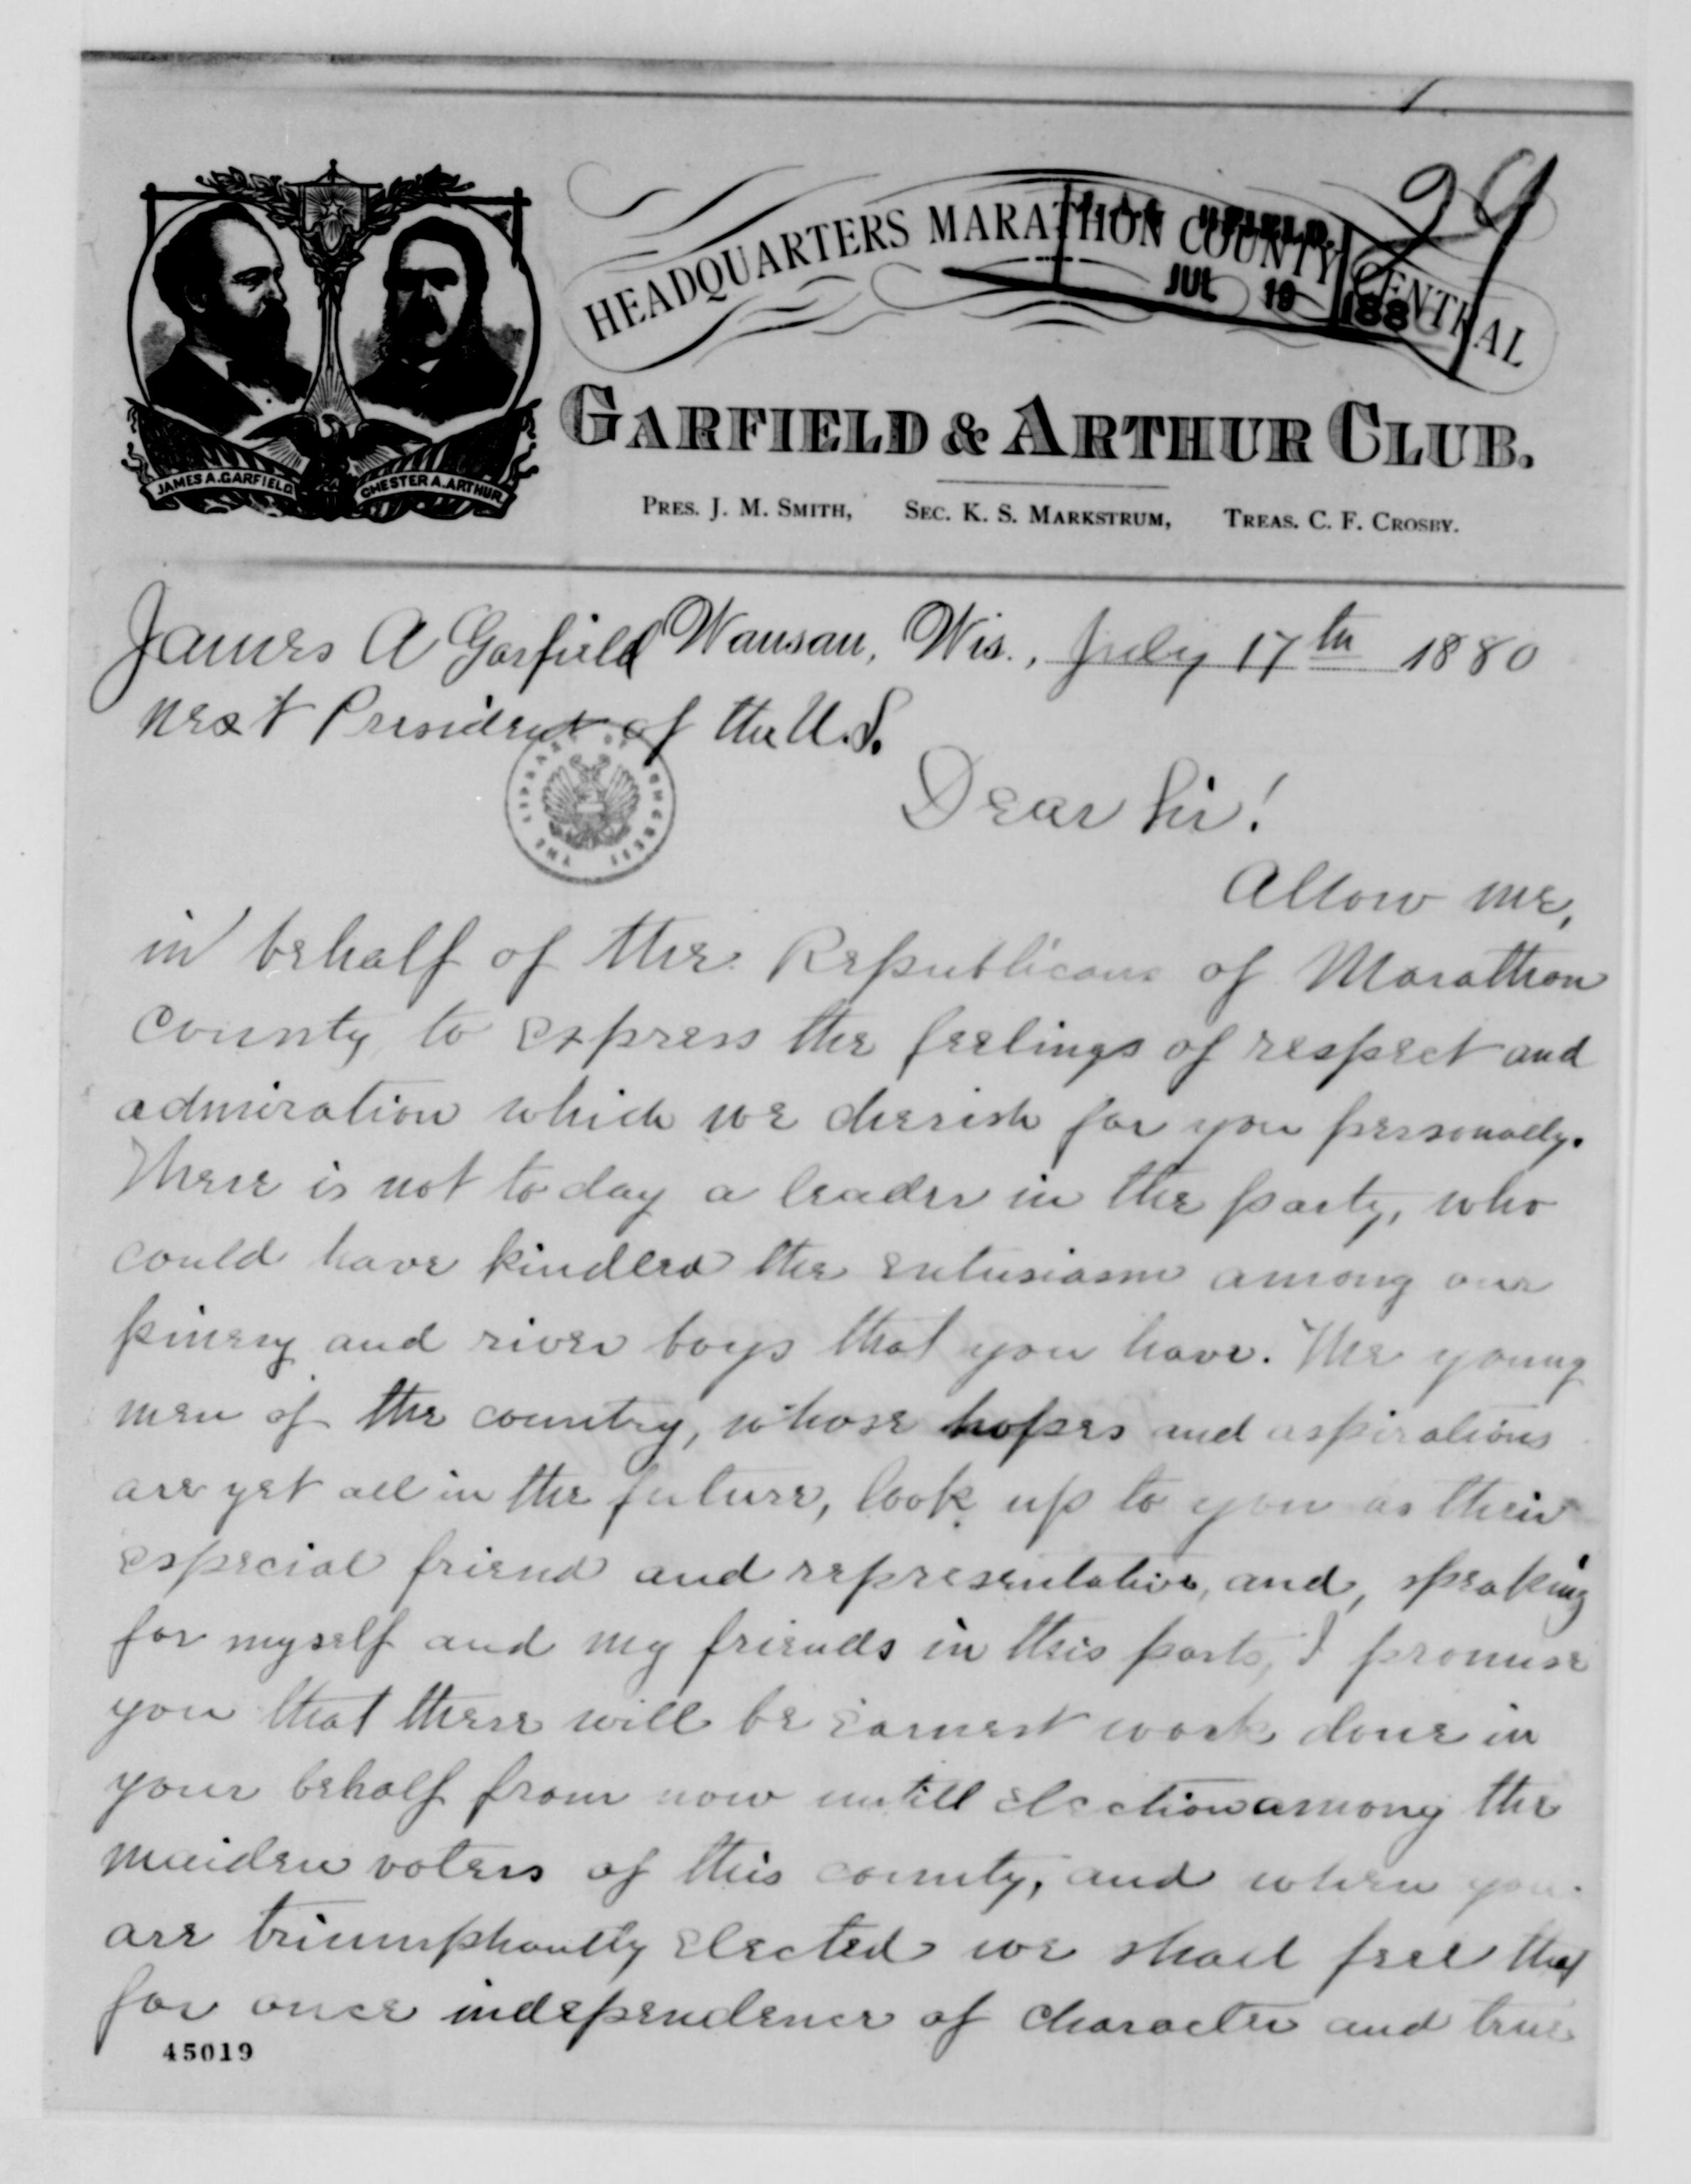 29
HEADQUARTERS MARATHON COUNTY CENTRAL
JUL 19 188
GARFIELD & ARTHUR CLUB.
JAMES A. GARFIELD
CHESTER A. ARTHUR
PRES. J. M. SMITH, SEC. K. S. MARKSTRUM, TREAS. C. F. CROSBY.
James A Garfield Wausau, Wis., July 17th 1880
Next President of the U.S.
THE LIBRARY OF CONGRESS
Dear Sir!
Allow me,
in behalf of the Republicans of Marathon
County, to express the feelings of respect and
admiration which we cherish for you personally.
There is not to day a leader in the party, who
could have kindled the entusiasm among our
pinery and river boys that you have. The young
men of the country, whose hopes and aspirations
are yet all in the future, look up to you as their
especial friend and representative, and, speaking
for myself and my friends in this parts, I promise
you that there will be earnest work done in
your behalf from now untill election among the
maiden voters of this county, and when you
are triumphantly elected we shall feel that
for once independence of character and true
45019